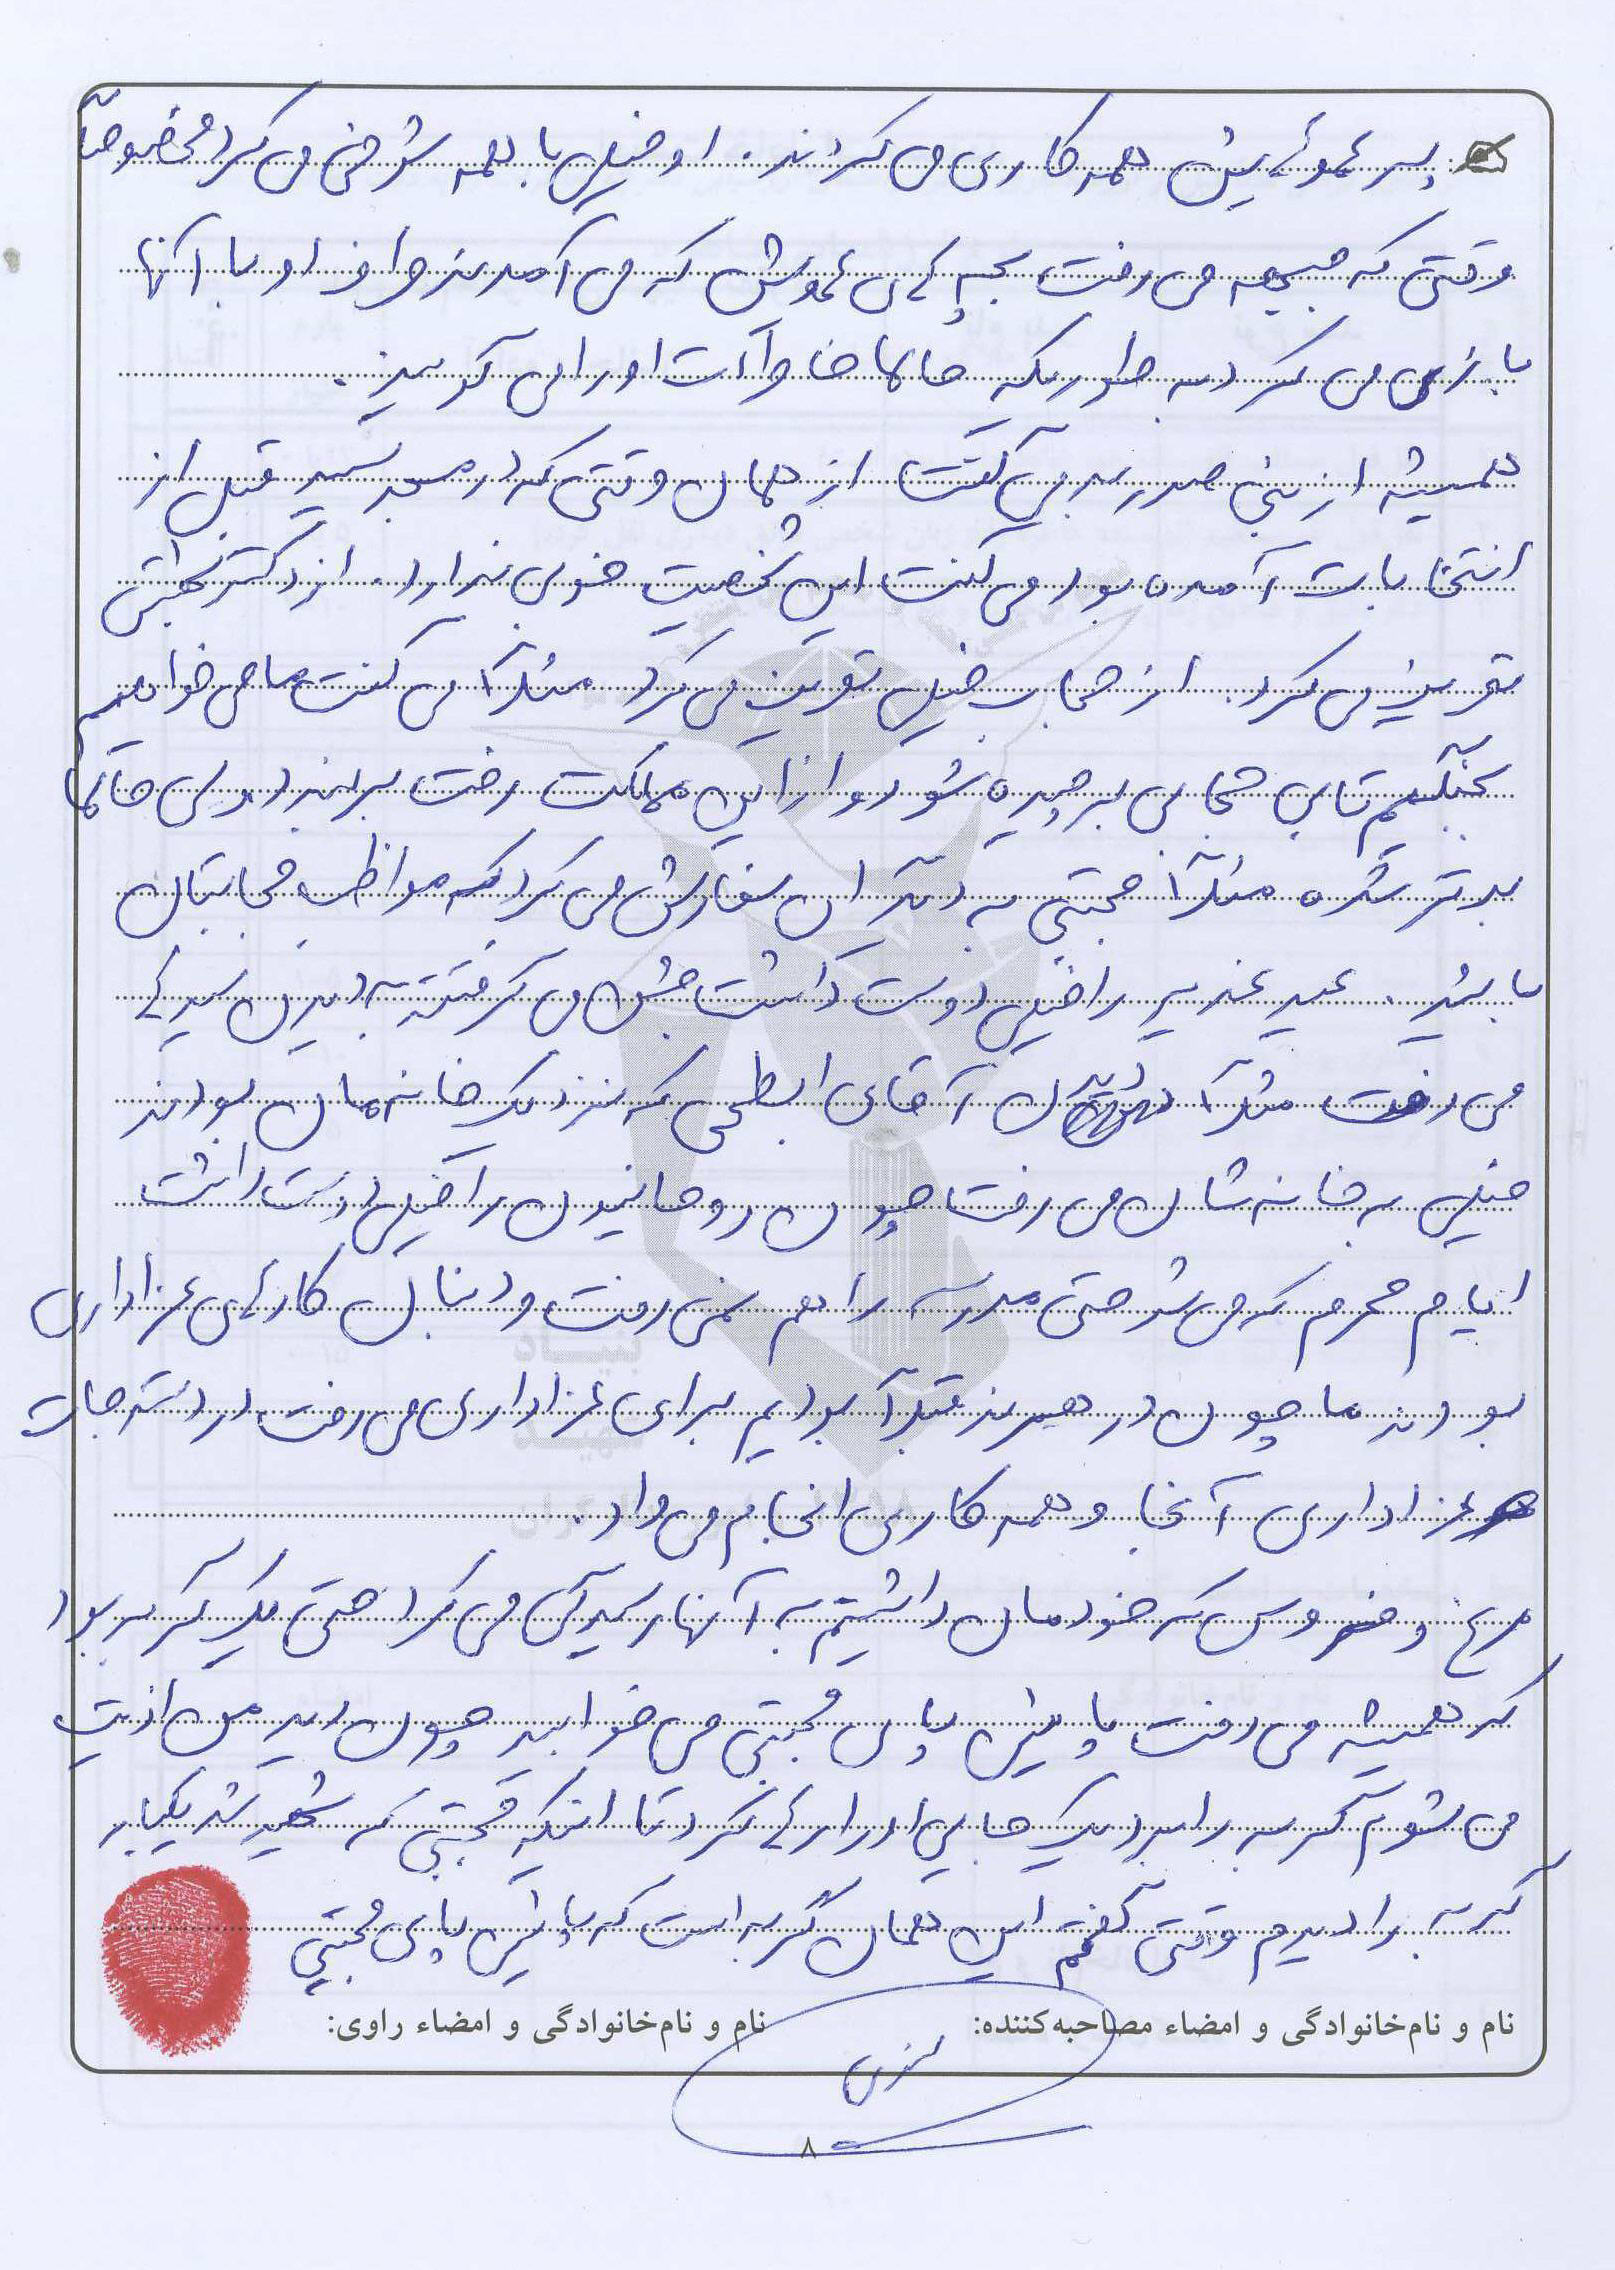 پسر عموئیش همه کاری می کردند. او خیلی با همه شوخی می کرد مخصوصاً
وقتی که جبهه می رفت بچه های عمویش که می آمدند او با آنها
بازی می کرد به طوریکه حالا خاطرات او را می گویند.
همیشه از بنی صدر بد می گفت از همان وقتی که در مسجد سید قبل از
انتخابات آمده بود می گفت این شخصیت خوبی ندارد. از دکتر بهشتی
تعریف می کرد. از حجاب خیلی تعریف می کرد مثلاً می گفت ما می خواهیم
بجنگیم تا بی حجابی برچیده شود و از این مملکت رخت بربندد ولی حالا
بدتر شده مثلاً مجتبی به دختران سفارش می کرد که مواظب حجابتان
باشید. عید غدیر را خیلی دوست داشت جشن می گرفت به دیدن سیدها
می رفت مثلاً دیدن آقای ابطحی که نزدیک خانه مان بودند
خیلی به خانه شان می رفت چون روحانیون را خیلی دوست داشت
ایام محرم که می شد حتی مدرسه را هم نمی رفت و دنبال کارهای عزاداری
بودند ما چون در هرند قبلاً بودیم برای عزاداری می رفت در دسته جات
عزاداری آنجا و همه کاری انجام می داد.
مرغ و خروس که خودمان داشتیم به آنها رسیدگی می کرد حتی یک گربه بود
که همیشه می رفت پائین پای مجتبی می خوابید چون دید من اذیت
می شوم گربه را برد یک جایی او را رها کرد تا اینکه مجتبی که شهید شد یکبار
گربه را دیدم وقتی گفتم این همان گربه است که پائین پای مجتبی
نام و نام‌خانوادگی و امضاء مصاحبه‌کننده:
نام و نام‌خانوادگی و امضاء راوی:
۸
بنیاد
شهید